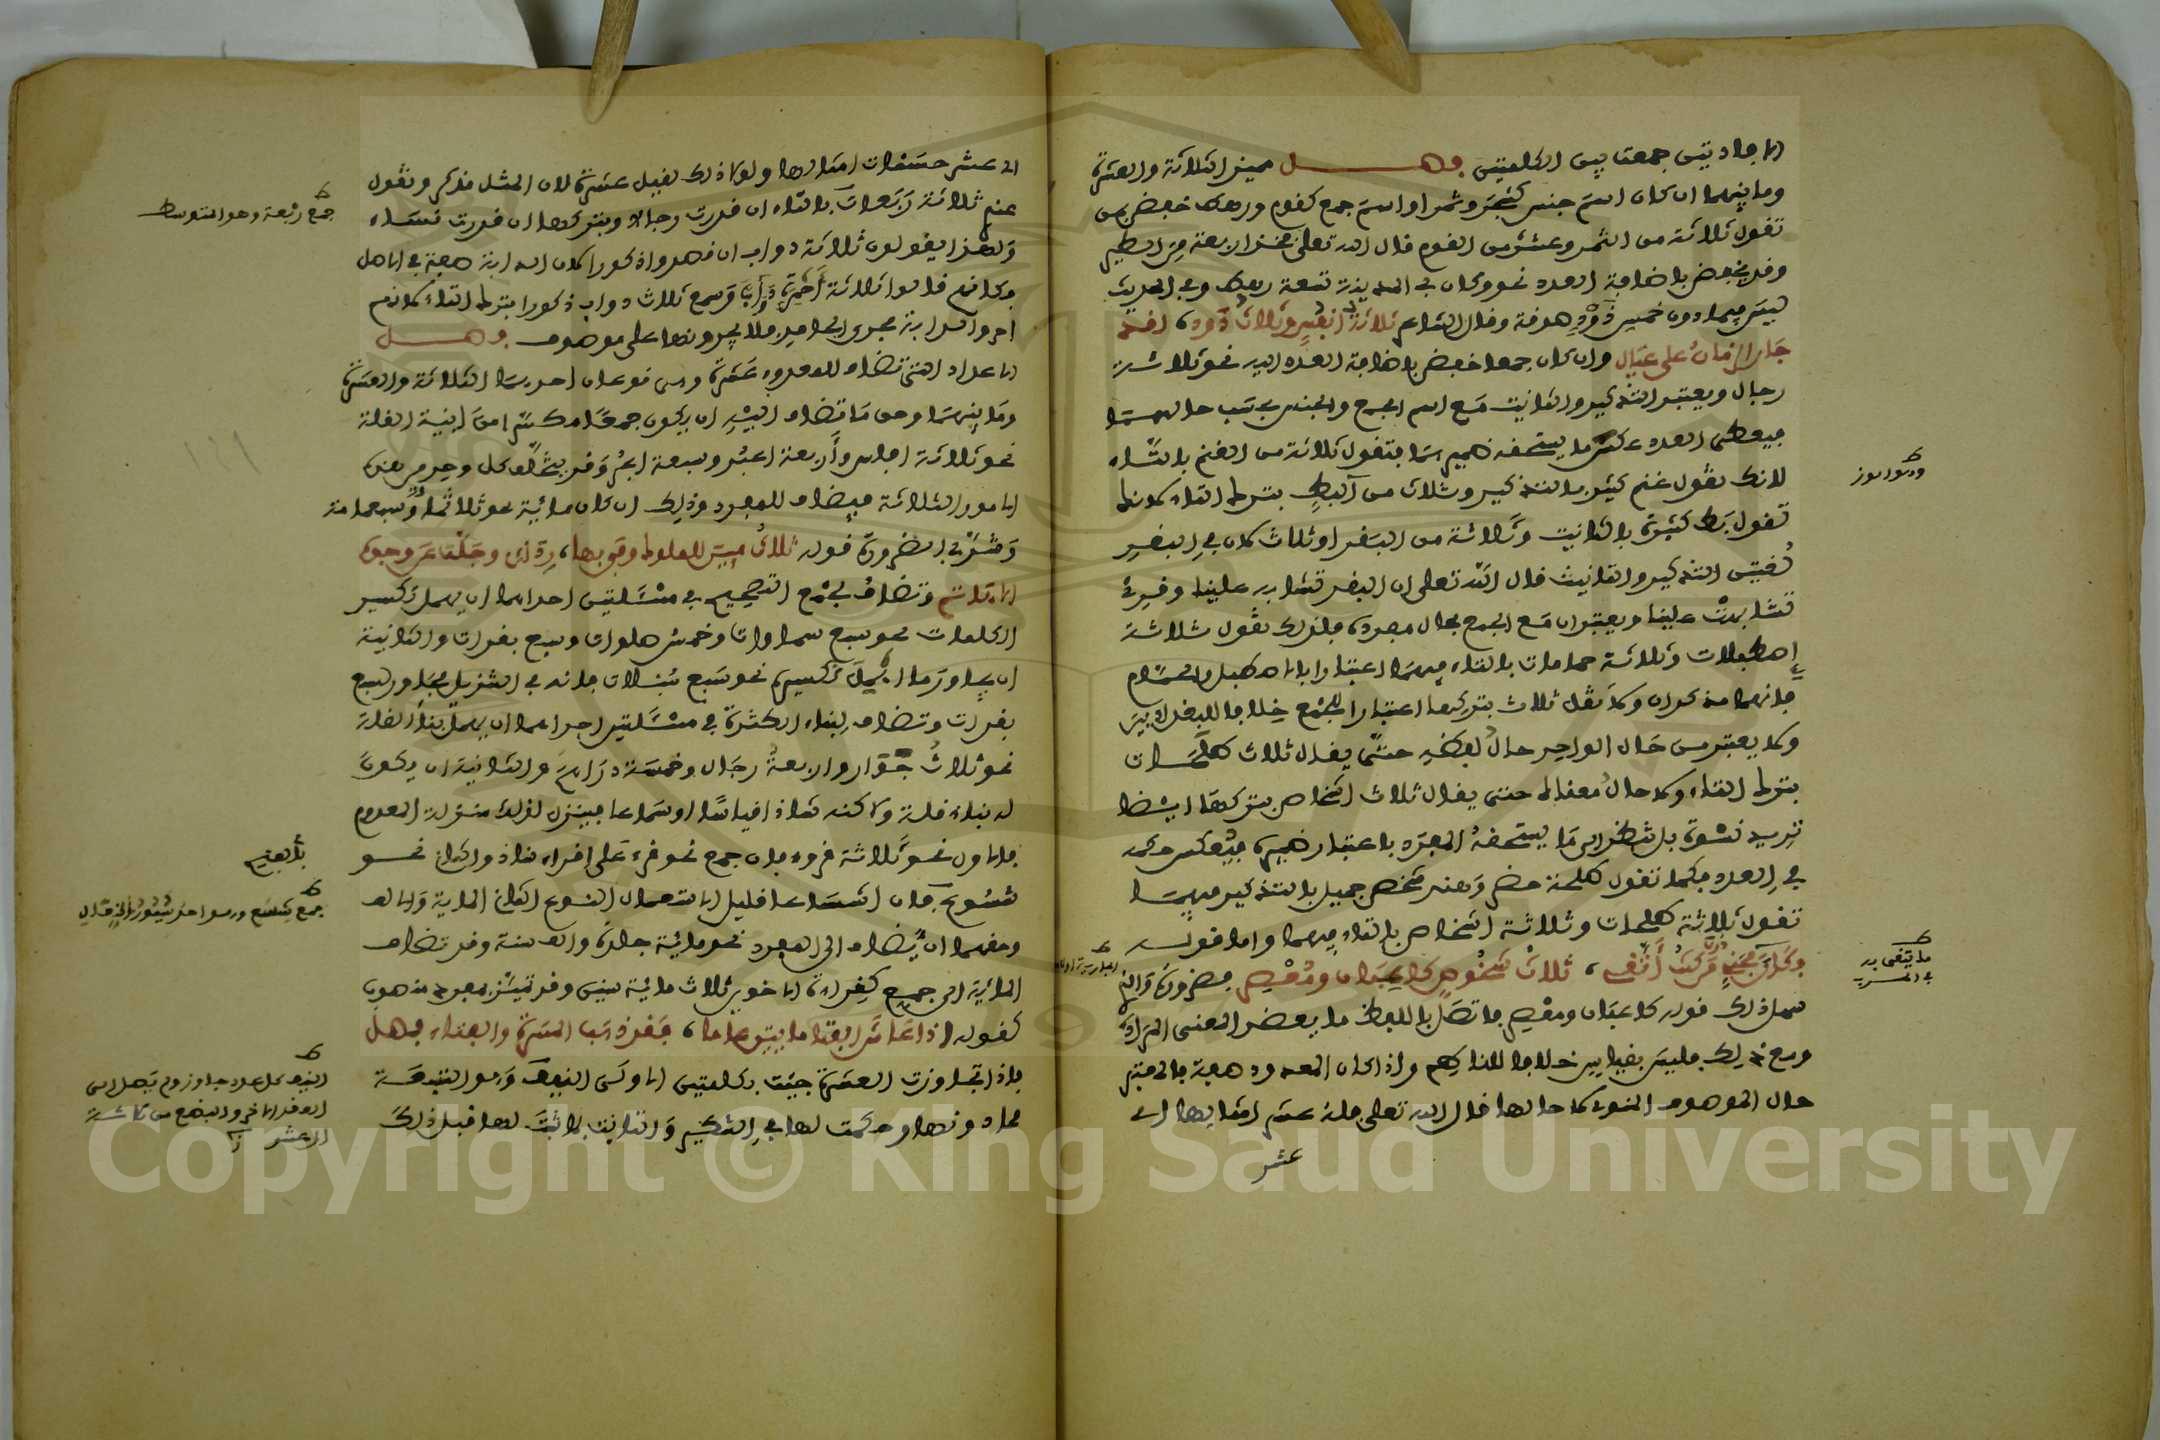 الإفادتين جمعتا بين الكلمتين فصل مميز الثلاثة والعشرة
وما بينهما ان كان اسم جنس كشجر وتمر او اسم جمع كقوم ورهط خفض بمن
تقول ثلاثة من التمر وعشرة من القوم قال الله تعلى فخذ اربعة من الطير
وقد يخفض باضافة العدد نحو وكان في المدينة تسعة رهط وفي الحديث
ليس فيما دون خمس ذود صدقة وقال الشاعر ثلاثة أنفس وثلاث ذود، لقد
جار الزمان على عيال وان كان جمعا خفض باضافة العدد اليه نحو ثلاثة
رجال ويعتبر التذكير والتانيث مع اسم الجمع والجنس بحسب حالهما
فيعطى العدد عكس ما يستحقه ضميرهما فتقول ثلاثة من الغنم بالتاء
لانك تقول غنم كثير بالتذكير وثلاث من البط بترك التاء لانك
تقول بط كثيرة بالتانيث وثلاثة من البقر او ثلاث لان في البقر
لغتين التذكير والتانيث قال الله تعلى ان البقر تشابه علينا وقرئ
تشابهت علينا ويعتبران مع الجمع بحال مفرده فلذلك تقول ثلاثة
إصطبلات وثلاثة حمامات بالتاء فيهما اعتبارا بالاصطبل والحمام
فانهما مذكران ولا تقل ثلاث بتركها اعتبارا بالجمع خلافا للبغداديين
ولا يعتبر من حال الواحد حال لفظه حتى يقال ثلاث طلحات
بترك التاء ولا حال معناه حتى يقال ثلاث اشخاص بتركها ايضا
تريد نسوة بل ينظر الى ما يستحقه المفرد باعتبار ضميره فيعكس حكمه
في العدد فكما تقول طلحة حضر وهند شخص جميل بالتذكير فيهما
تقول ثلاثة طلحات وثلاثة اشخاص بالتاء فيهما واما قوله
فكان مجني دون من كنت أتقي، ثلاث شخوص كاعبان ومعصر فضرورة والذي
سهل ذلك قوله كاعبان ومعصر فاتصل باللفظ ما يعضد المعنى المراد
ومع ذلك فليس بقياس خلافا للناظم واذا كان المعدود صفة فالمعتبر
حال الموصوف المنوي لا حالها قال الله تعلى فله عشر امثالها اي
عشر
اي عشر حسنات امثالها ولولا ذلك لقيل عشرة لان المثل مذكر وتقول
عندي ثلاثة ربعات بالتاء ان قدرت رجالا وبتركها ان قدرت نساء
ولهذا يقولون ثلاثة دواب ان قصدوا ذكورا لان الدابة صفة في الاصل
فكانهم قالوا ثلاثة أحمرة دواب وسمع ثلاث دواب ذكورا بترك التاء لانهم
اجروا الدابة مجرى الجامد فلا يجرونها على موصوف فصل
الاعداد التي تضاف للمعدود عشرة وهي نوعان احدهما الثلاثة والعشرة
وما بينهما وحق ما تضاف اليه ان يكون جمعا مكسرا من ابنية القلة
نحو ثلاثة افلس وأربعة اعبد وسبعة ابحر وقد يتخلف كل واحد من هذه
الامور الثلاثة فيضاف للمفرد وذلك ان كان مائة نحو ثلاثمائة وتسعمائة
وشذ في الضرورة قوله ثلاث مئين للملوك وفى بها، ردائي وجلت عن وجوه
الاهاتم وتضاف لجمع التصحيح في مسئلتين احداهما ان يهمل تكسير
الكلمات نحو سبع سماوات وخمس صلوات وسبع بقرات والثانية
ان يجاور ما اهمل تكسيره نحو سبع سنبلات فانه في التنزيل مجاور لسبع
بقرات وتضاف لبناء الكثرة في مسئلتين احداهما ان يهمل بناء القلة
نحو ثلاث جوار واربعة رجال وخمسة دراهم والثانية ان يكون
له بناء قلة ولاكنه شاذ قياسا او سماعا فينزل لذلك منزلة المعدوم
فالاول نحو ثلاثة قروء فان جمع نحو قرء على اقراء شاذ والثاني نحو
شسوع فان اشساعا قليل الاستعمال النوع الثاني المائة والالف
وحقهما ان يضافا الى المفرد نحو مائة جلدة والف سنة وقد تضاف
المائة الى جمع كقراءة الاخوين ثلاث مائة سنين وقد تميز بمفرد منصوب
كقوله اذا عاش الفتى مائتين عاما، فقد ذهب المسرة والفتاء فصل
فاذا تجاوزت العشرة جئت بكلمتين الاولى النيف وهو التسعة
فما دونها وحكمت لها في التذكير والتانيث بما ثبت لها قبل ذلك
جمع ربعة وهو المتوسط